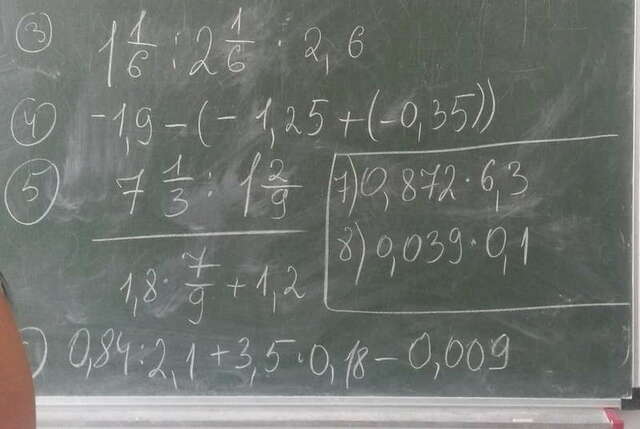 ③ 1 1/6 : 2 1/6 · 2,6
④ -1,9 - (-1,25 + (-0,35))
⑤ 7 1/3 : 1 2/9
1,8 · 7/9 + 1,2
7) 0,872 · 6,3
8) 0,039 · 0,1
) 0,84 : 2,1 + 3,5 · 0,18 - 0,009